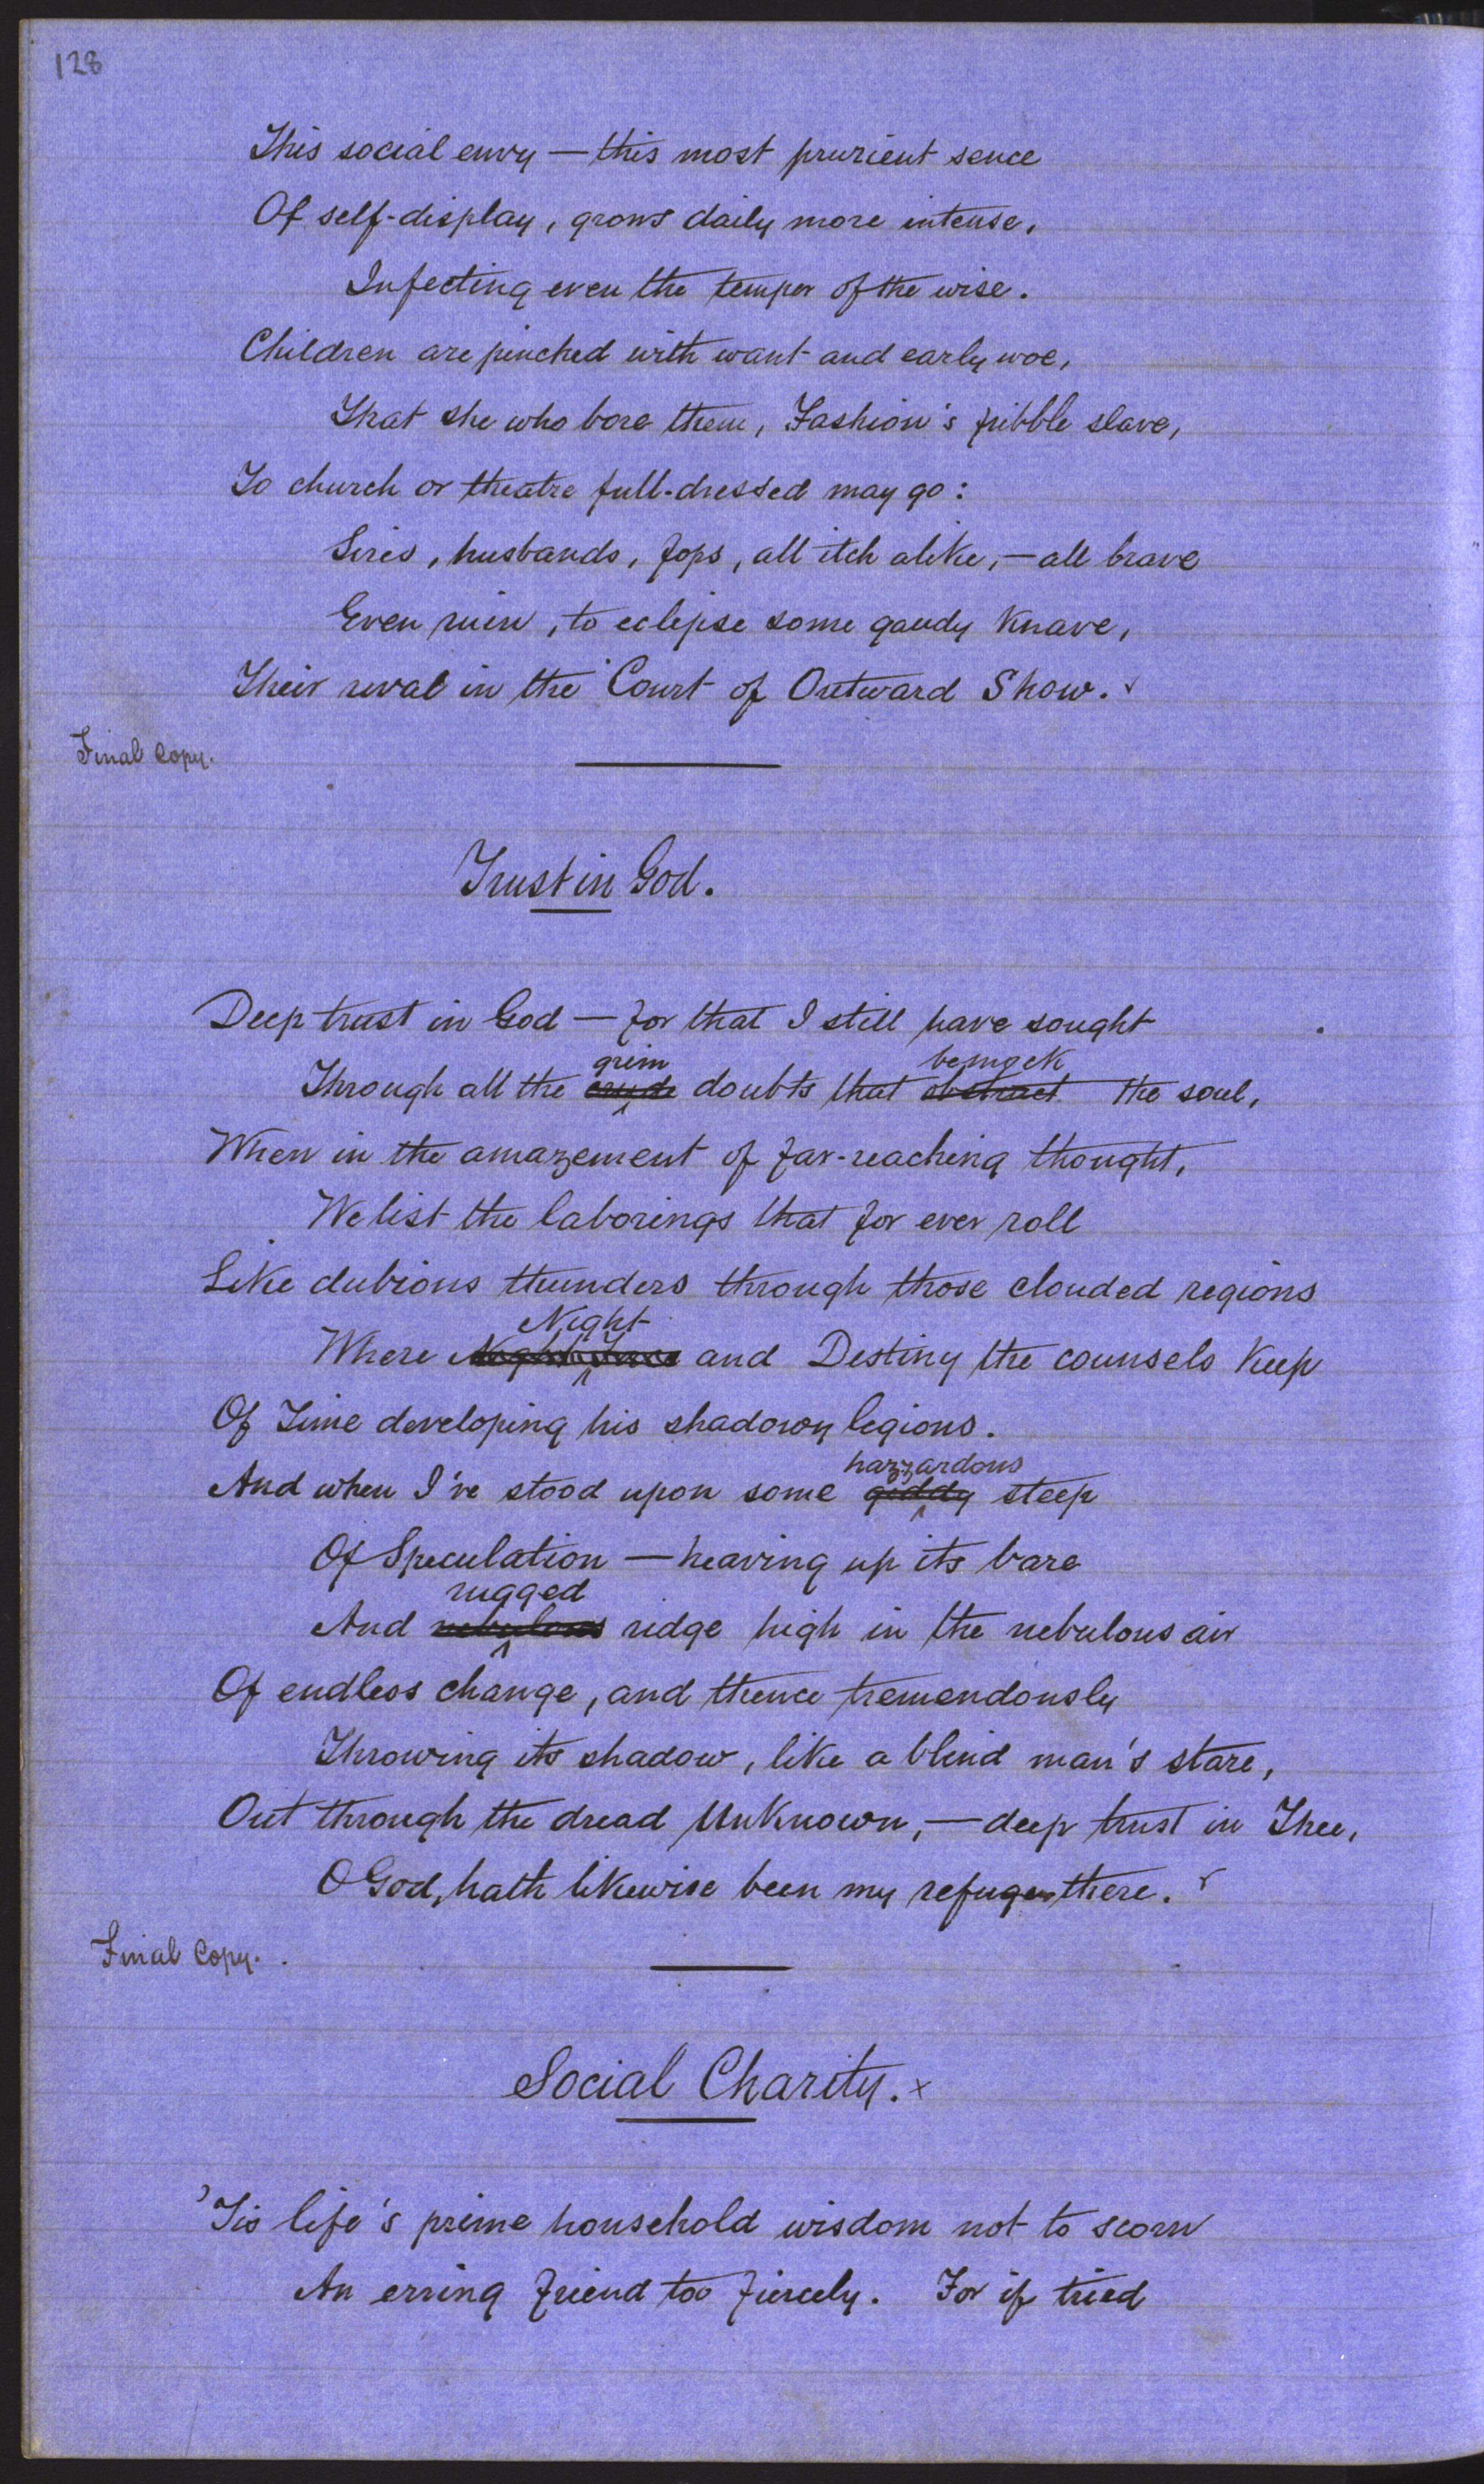 128
This social envy — this most prurient sence
Of self-display, grows daily more intense,
Infecting even the temper of the wise.
Children are pinched with want and early woe,
That she who bore them, Fashion's fribble slave,
To church or theatre full-dressed may go:
Sires, husbands, fops, all itch alike, — all brave
Even ruin, to eclipse some gaudy Knave,
Their rival in the Court of Outward Show.
Final Copy.
Trust in God.
Deep trust in God — for that I still have sought
grim bemock
Through all the crude doubts that obstruct the soul,
When in the amazement of far-reaching thought,
We list the laborings that for ever roll
Like dubious thunders through those clouded regions
Night
Where and Destiny the counsels Keep
Of Time developing his shadowy legions.
hazzardous
And when I've stood upon some giddy steep
Of Speculation — heaving up its bare
rugged
And nebulous ridge high in the nebulous air
Of endless change, and thence tremendously
Throwing its shadow, like a blind man's stare,
Out through the dread Unknown, — deep trust in Thee,
O God, hath likewise been my refuge there.
Final Copy.
Social Charity. x
'Tis life's prime household wisdom not to scorn
An erring friend too fiercely. For if tried